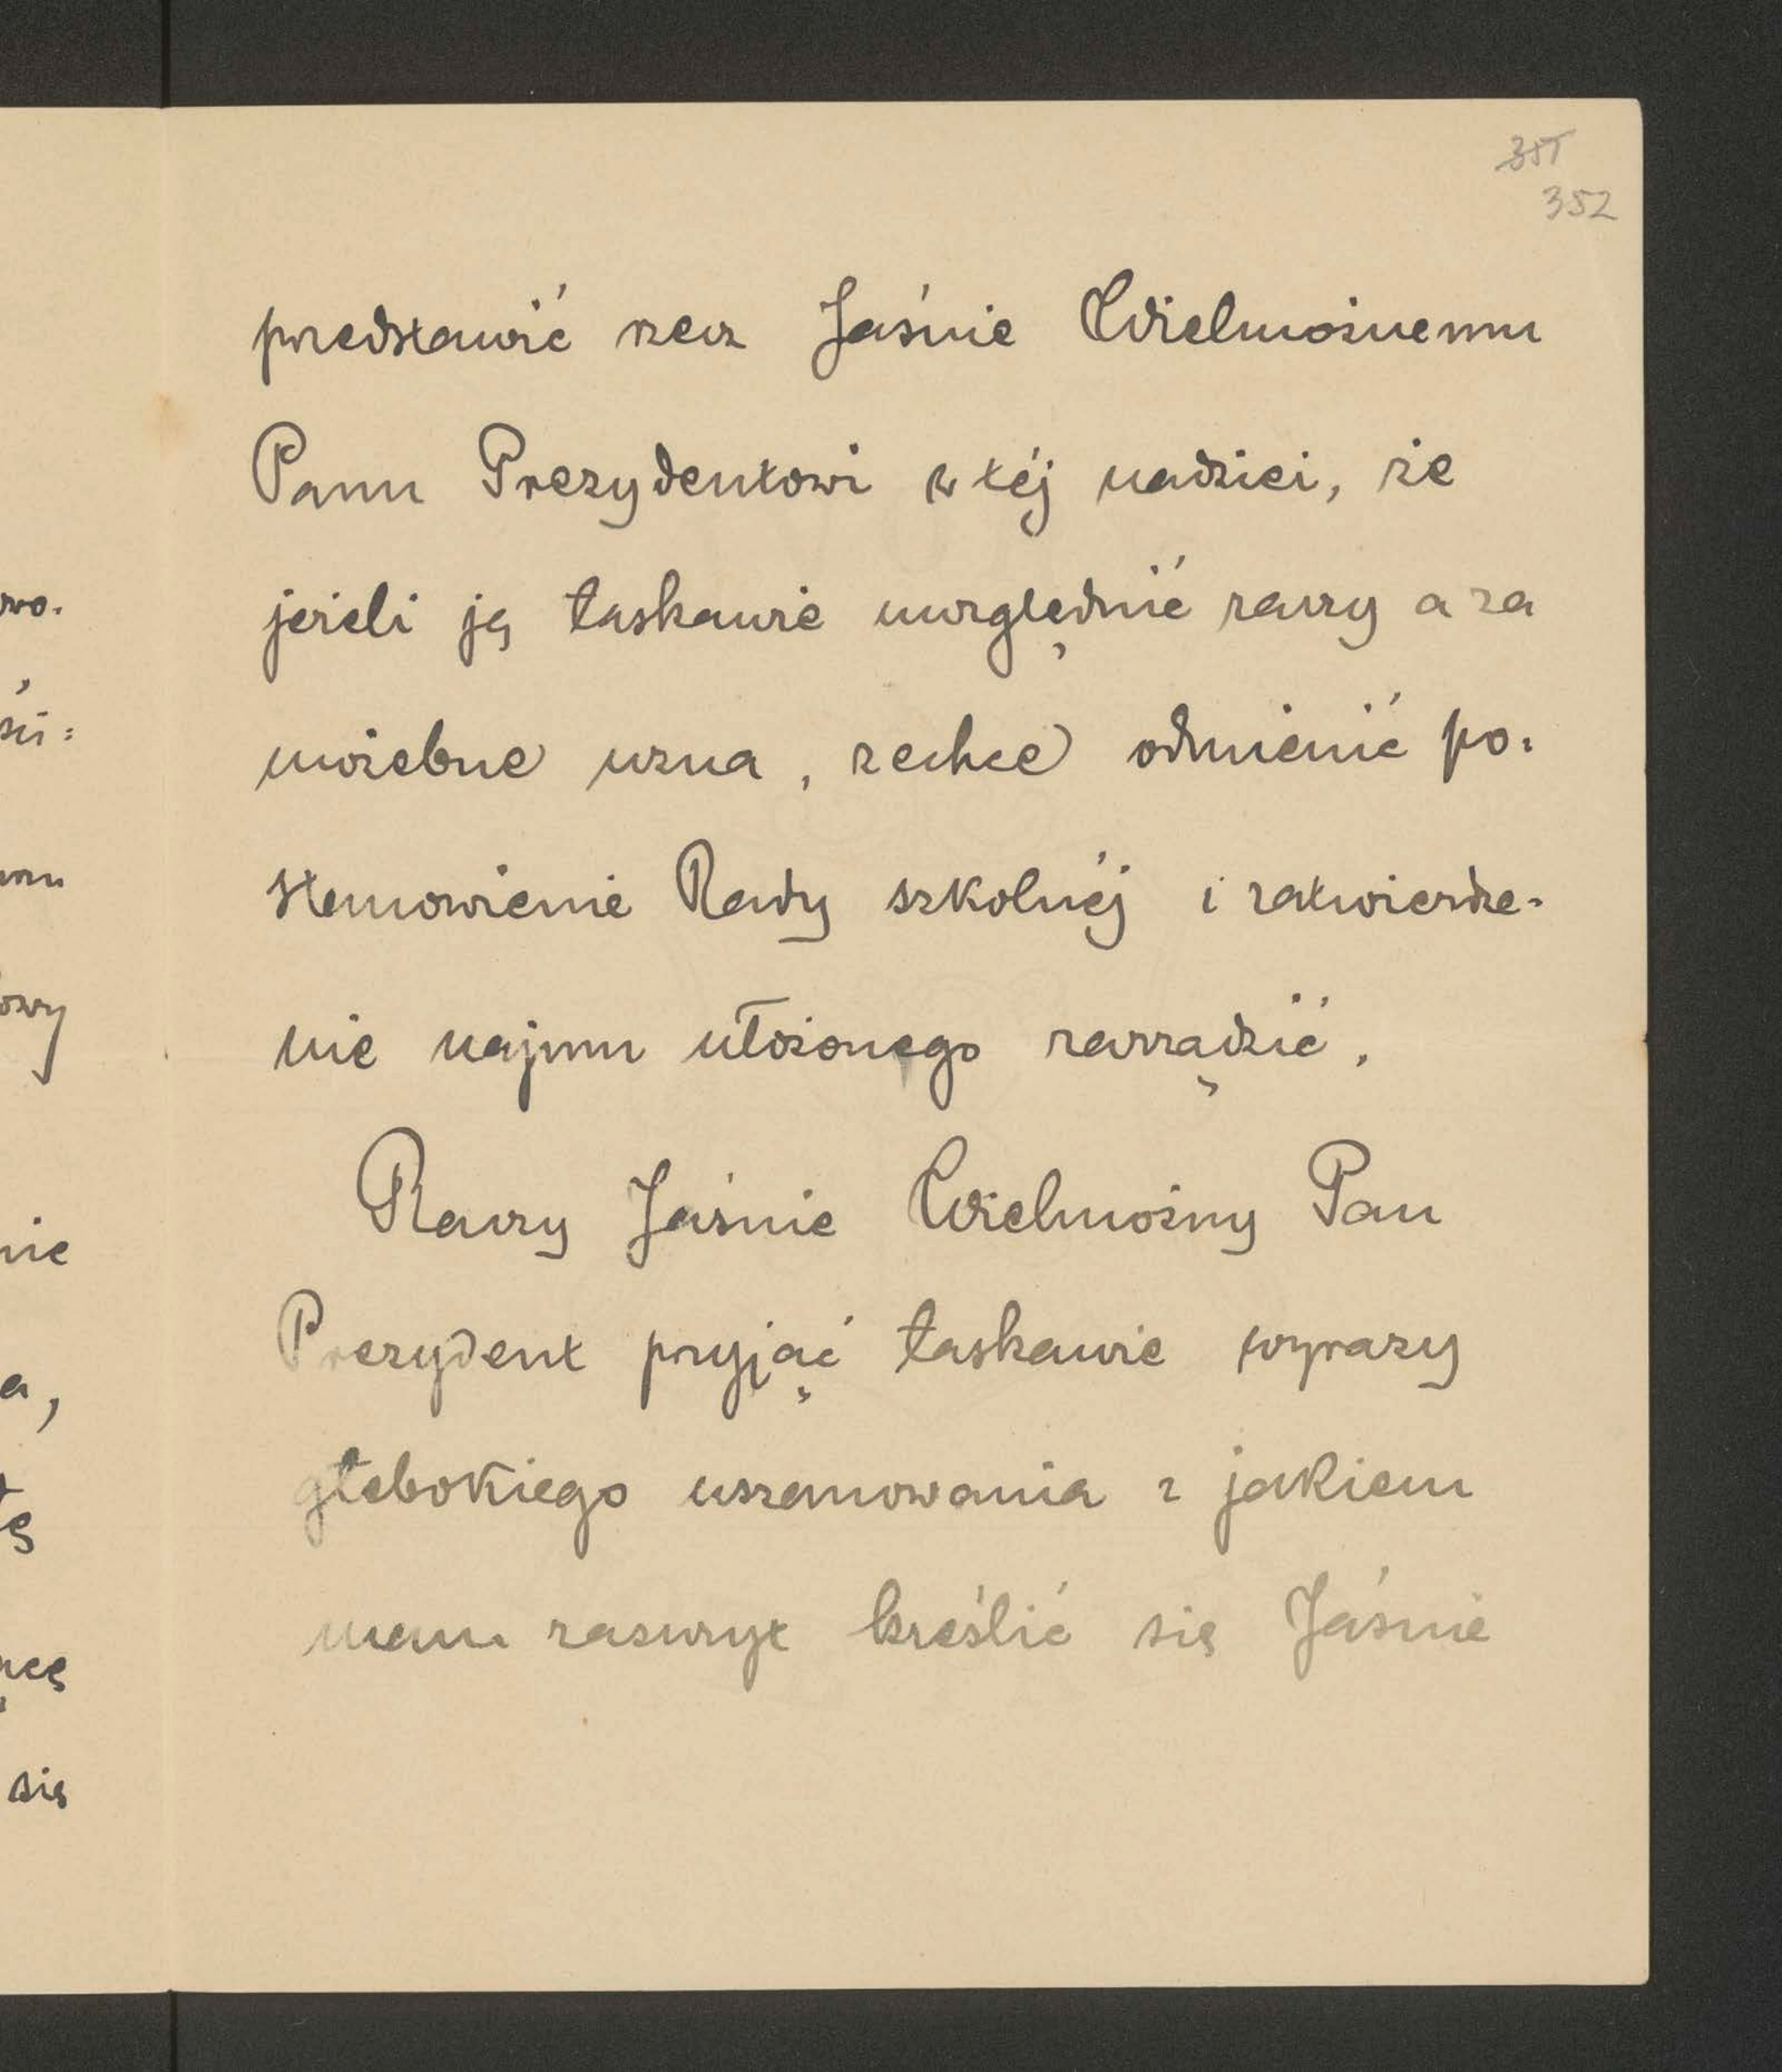 351
352
przedstawić rzecz Jaśnie Wielmożnemu
Panu Prezydentowi w téj nadziei, że
jeżeli ją łaskawie uwzględnić raczy a za
możebne uzna, zechce odmienić po-
stanowienie Rady szkolnéj i zatwierdze-
nie najmu ułożonego zarządzić.
Raczy Jaśnie Wielmożny Pan
Prezydent przyjąć łaskawie wyrazy
głebokiego uszanowania z jakiem
mam zaszczyt kreślić się Jaśnie
wo.
owy
nie
a,
się